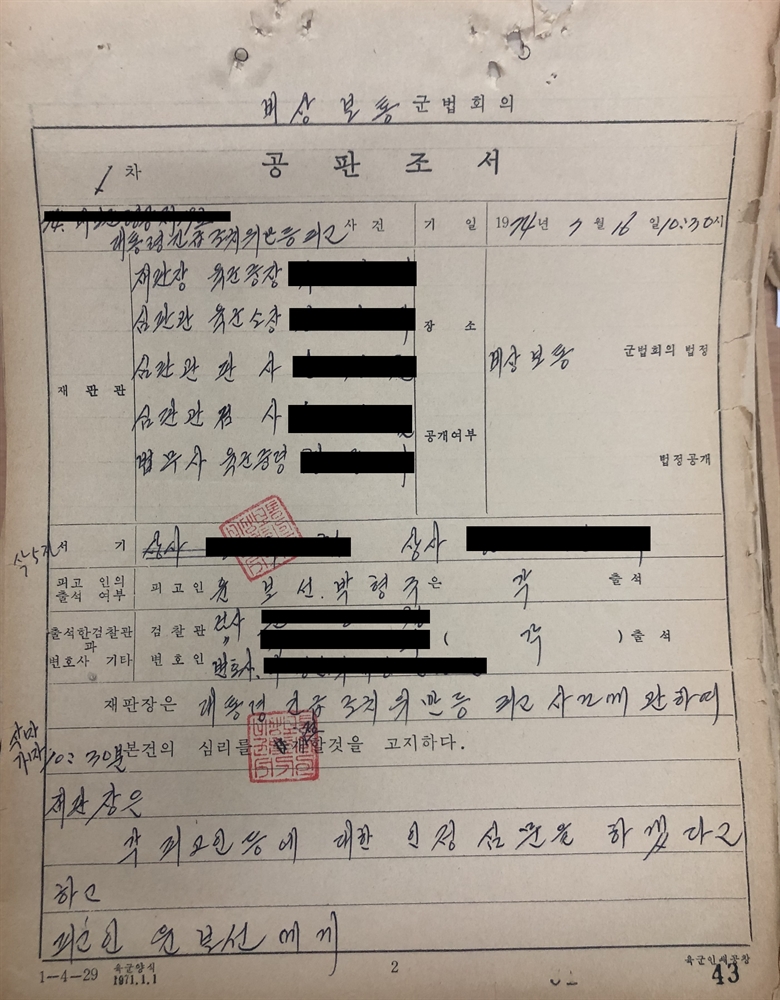 비상 보통 군법회의
1차
공판조서
대통령 긴급조치위반등 피고 사건
기일
1974년 7월 16일 10:30시
재판관
재판장 육군중장
심판관 육군소장
심판관 판사
심판관 검사
법무사 육군중령
장소
비상보통 군법회의 법정
공개여부
법정공개
서기
상사
상사
피고인의 출석여부
피고인 윤보선. 박형규은 각 출석
출석한검찰관과 변호사 기타
검찰관 검사
〃
( 각 ) 출석
변호인 변호사.
재판장은 대통령 긴급조치위반등 피고사건에 관하여
10:30분 본건의 심리를 할것을 고지하다.
재판장은
각 피고인등에 대한 인정 심문을 하겠다고
하고
피고인 윤보선에게
1-4-29 육군양식 1971.1.1
2
육군인쇄공창
43